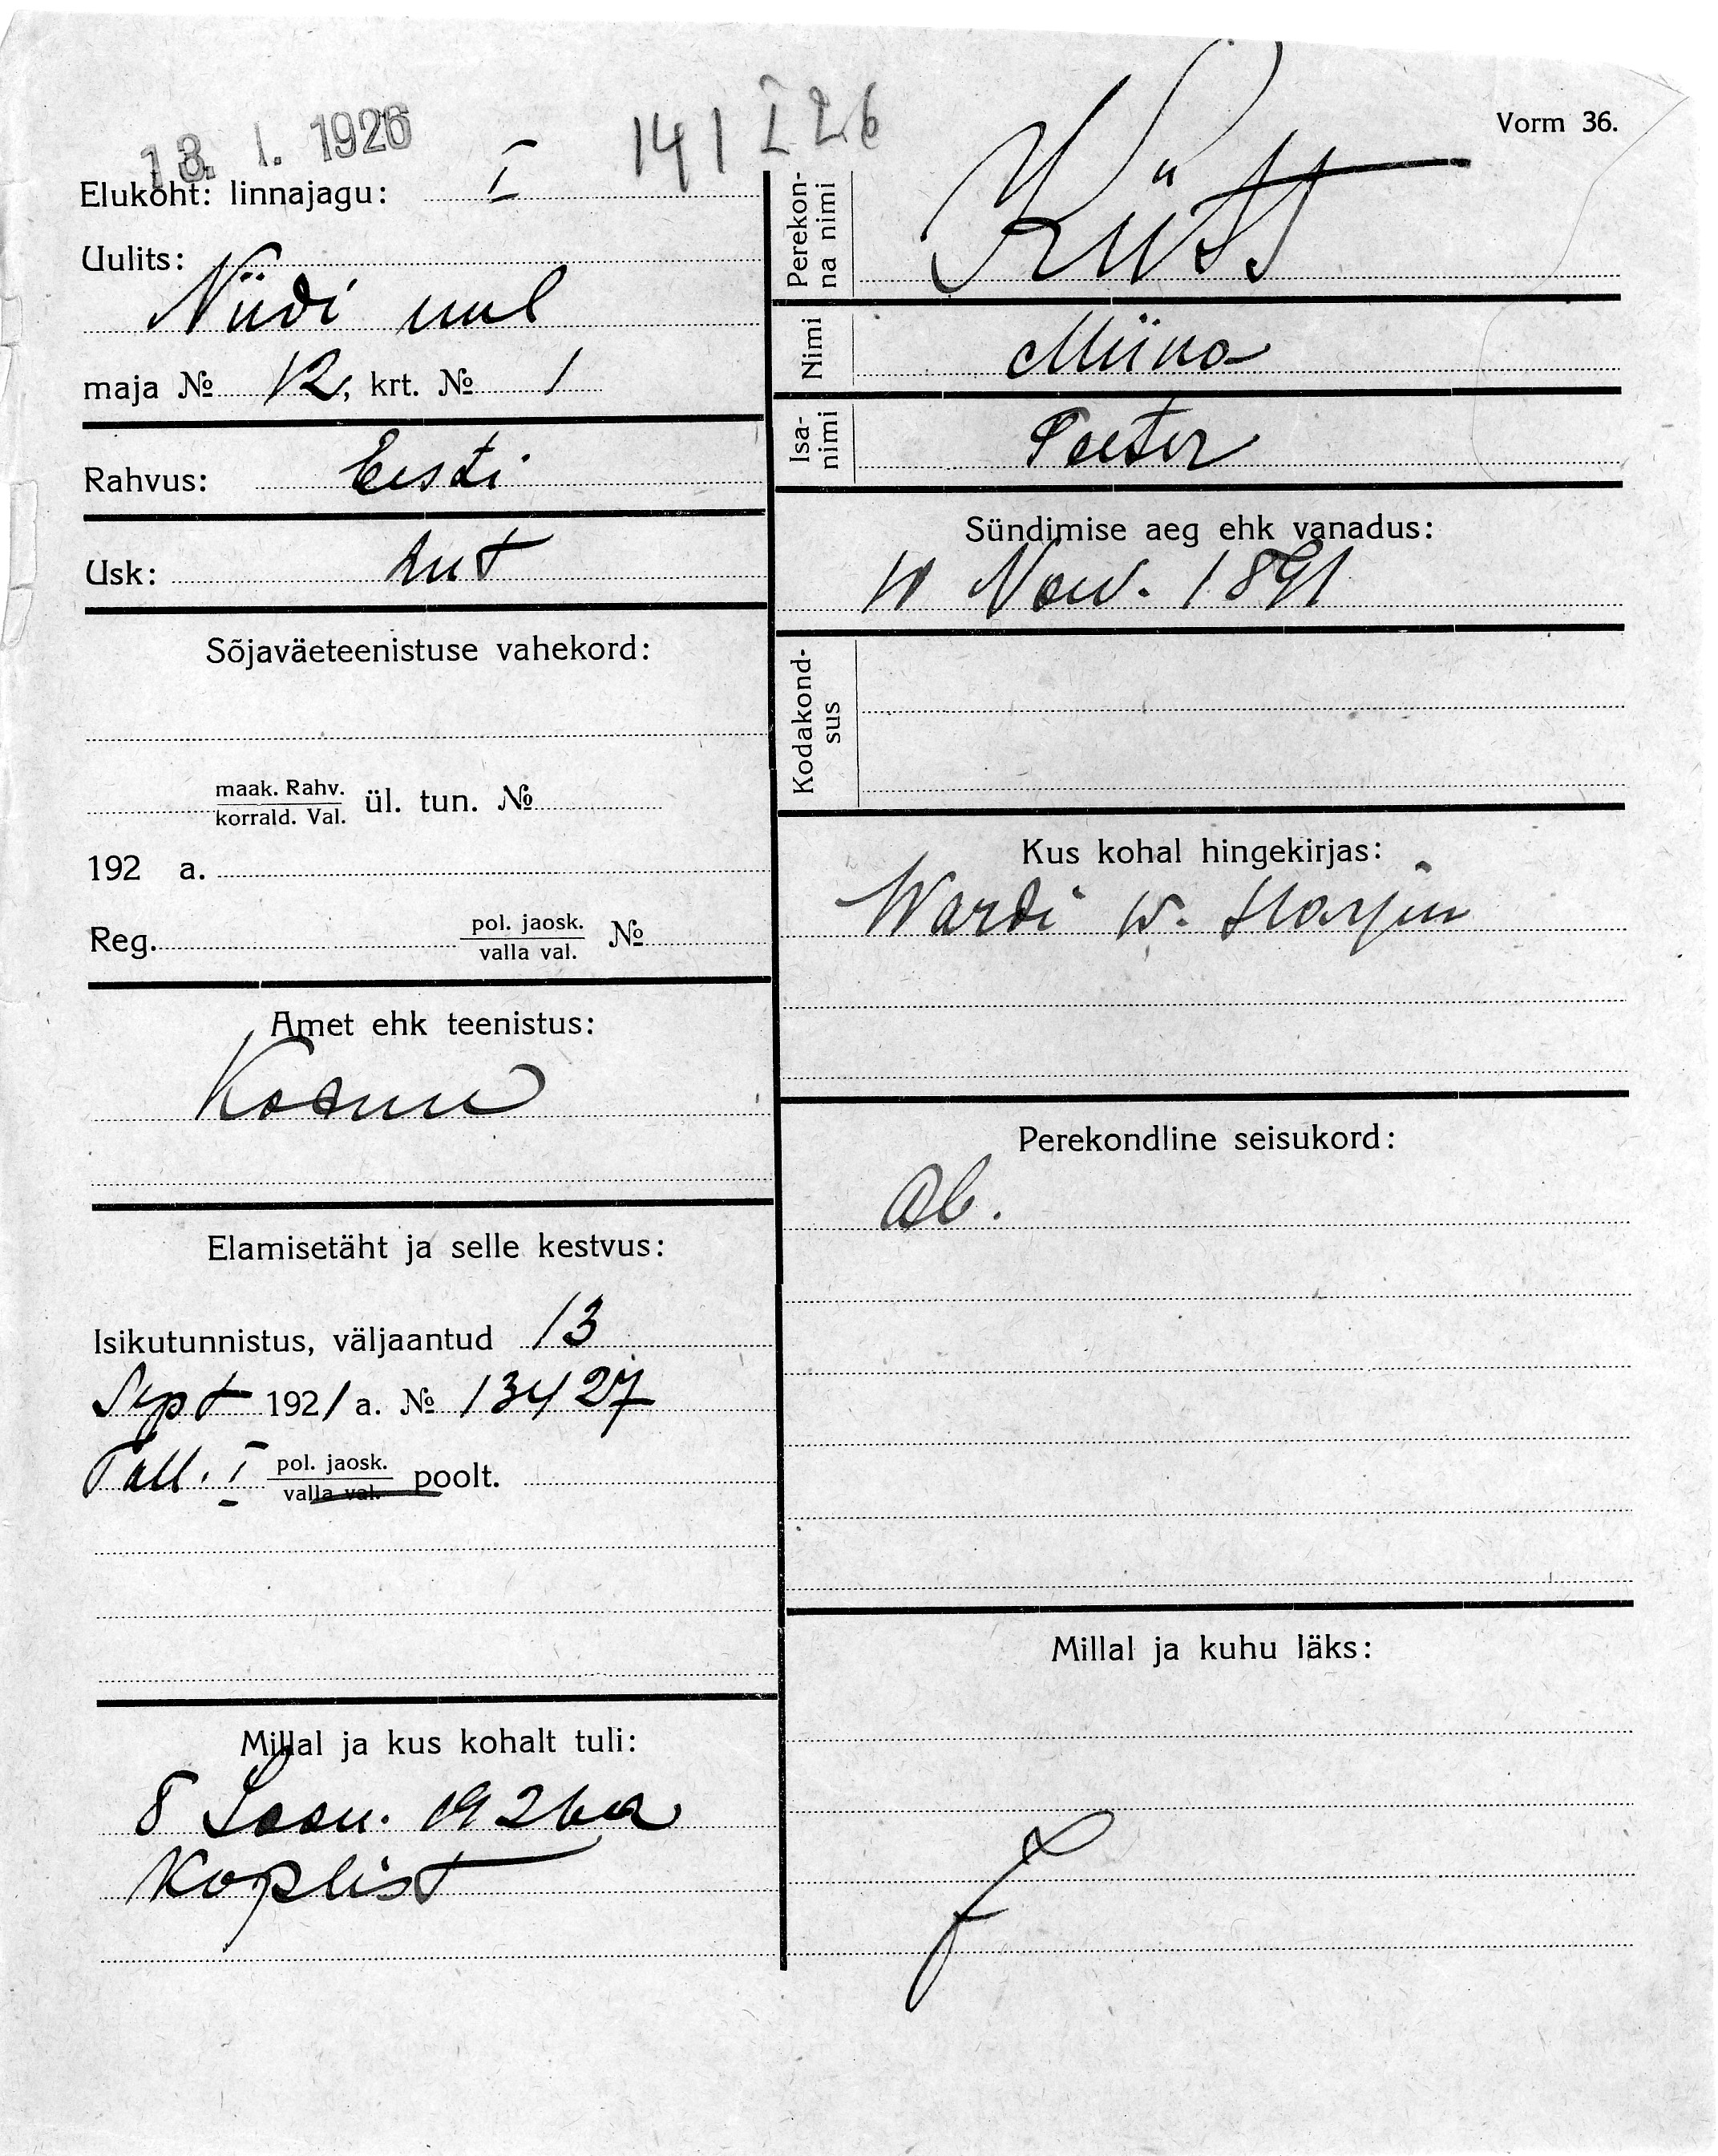 13. I. 1926
14 I 26
Vorm 36.
Elukoht: linnajagu: I
Uulits:
Niidi uul
maja № 12, krt. № 1
Rahvus: Eesti
Usk: Lut
Sõjaväeteenistuse vahekord:
maak. Rahv.
korrald. Val. ül. tun. №
192 a.
Reg. pol. jaosk.
valla val. №
Amet ehk teenistus:
Elamisetäht ja selle kestvus:
Isikutunnistus, väljaantud 13
Sept 1921 a. № 13427
Tall. I pol. jaosk.
valla val. poolt.
Millal ja kus kohalt tuli:
8 1926 a
Koplist
Perekon-
na nimi
Kütt
Nimi Miina
Isa-
nimi Peeter
Sündimise aeg ehk vanadus:
Now. 1891
Kodakond-
sus
Kus kohal hingekirjas:
Wardi w. Harju
Perekondline seisukord:
Ab.
Millal ja kuhu läks: